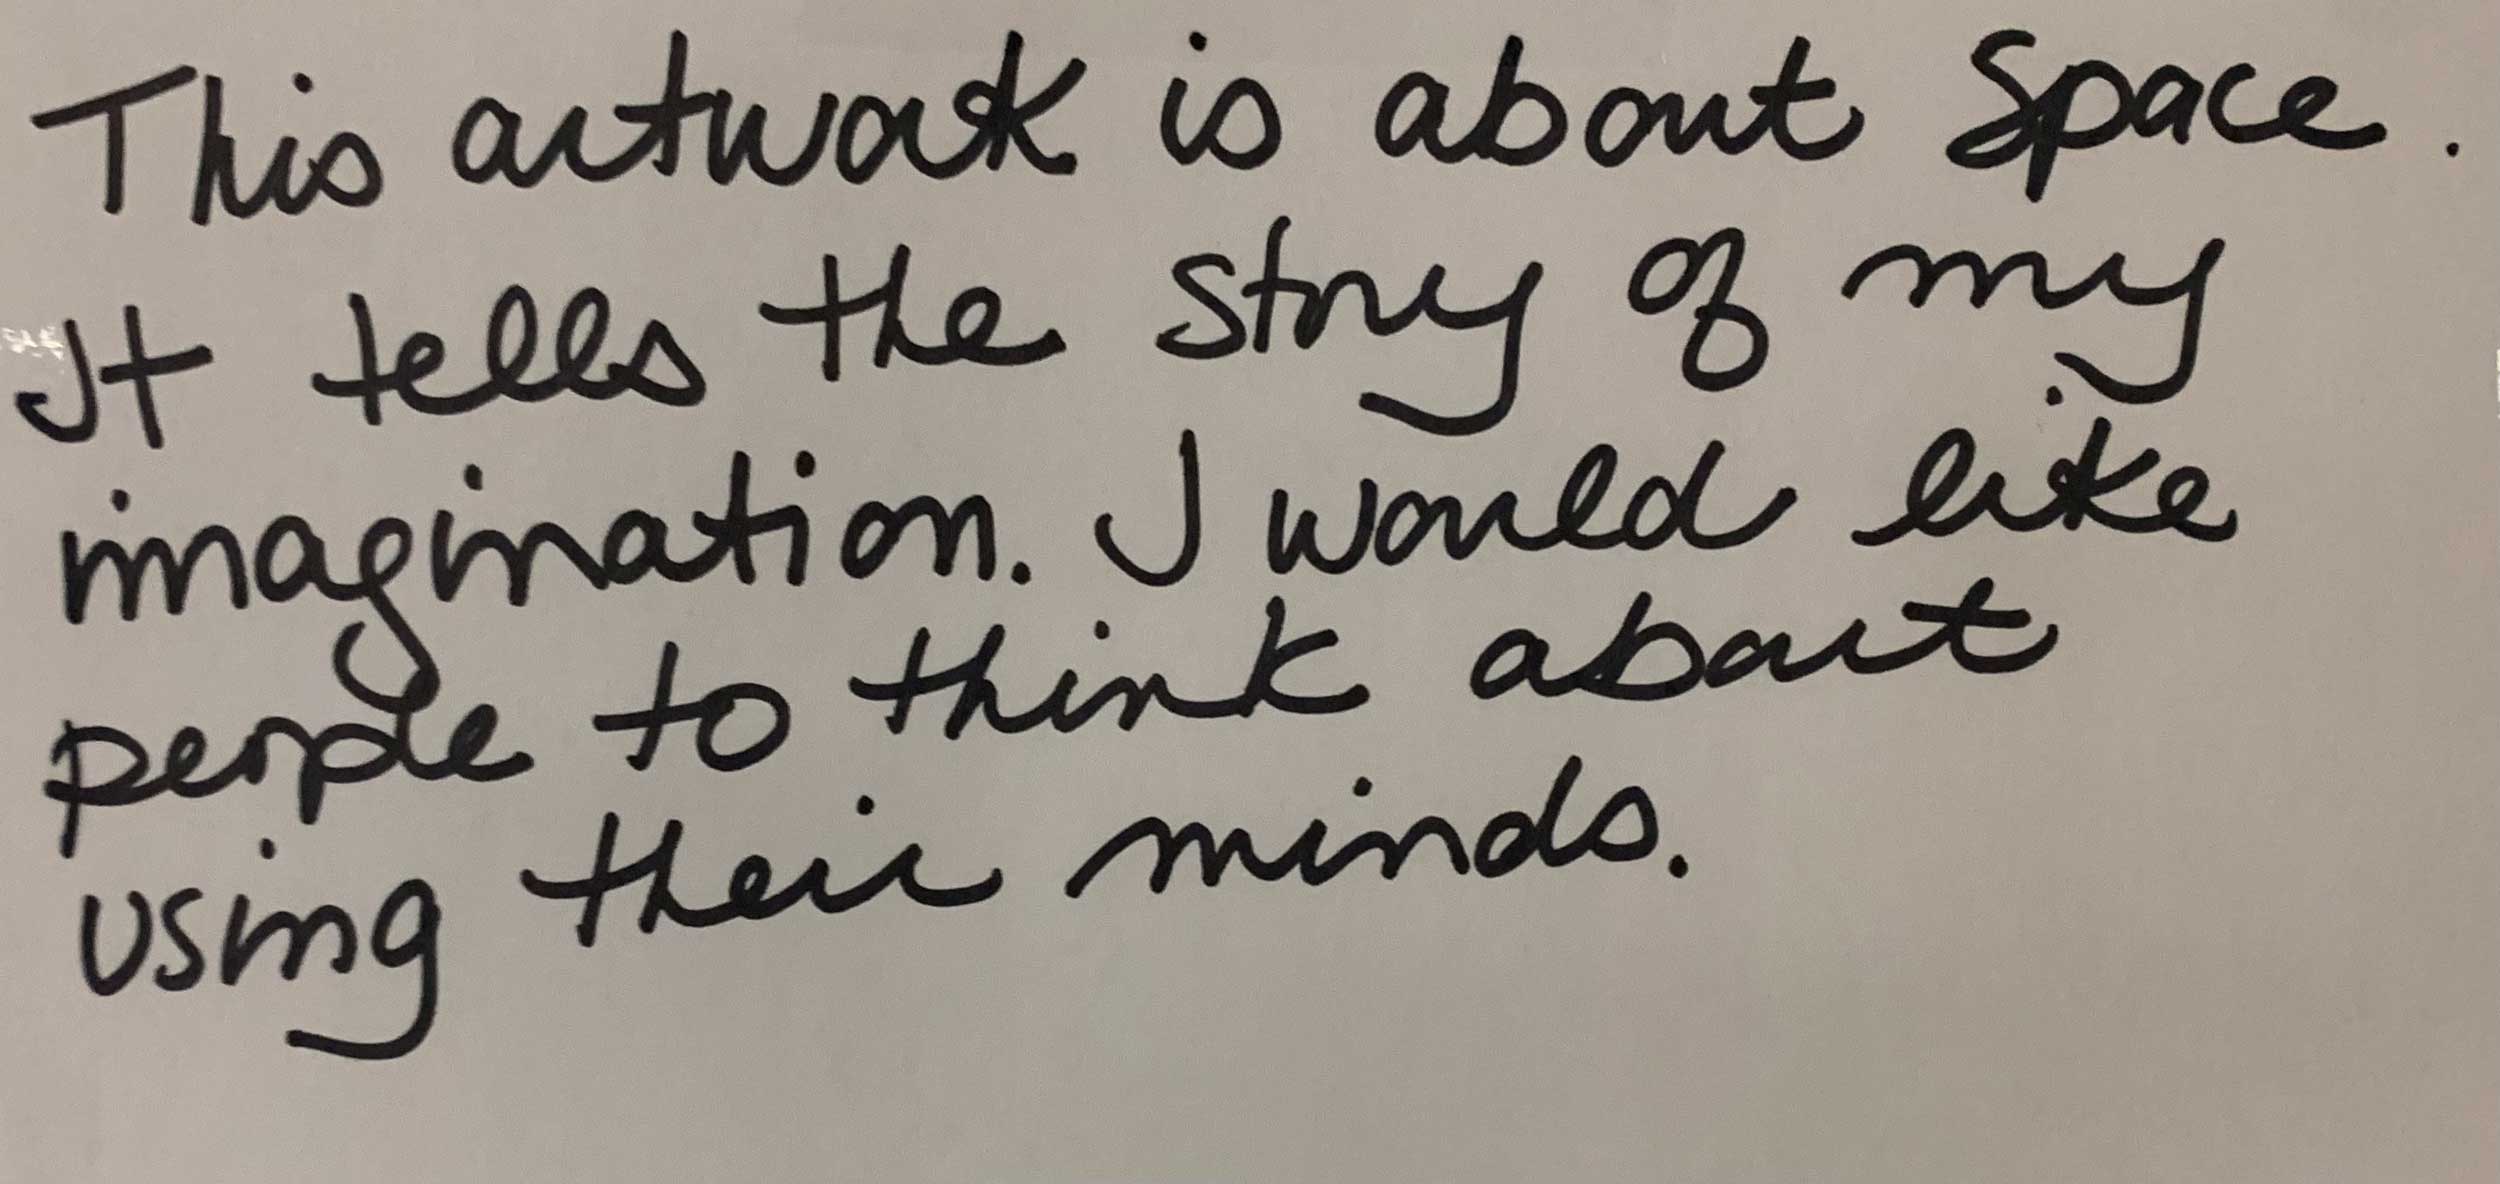 This artwork is about space.
It tells the story of my
imagination. I would like
people to think about
using their minds.